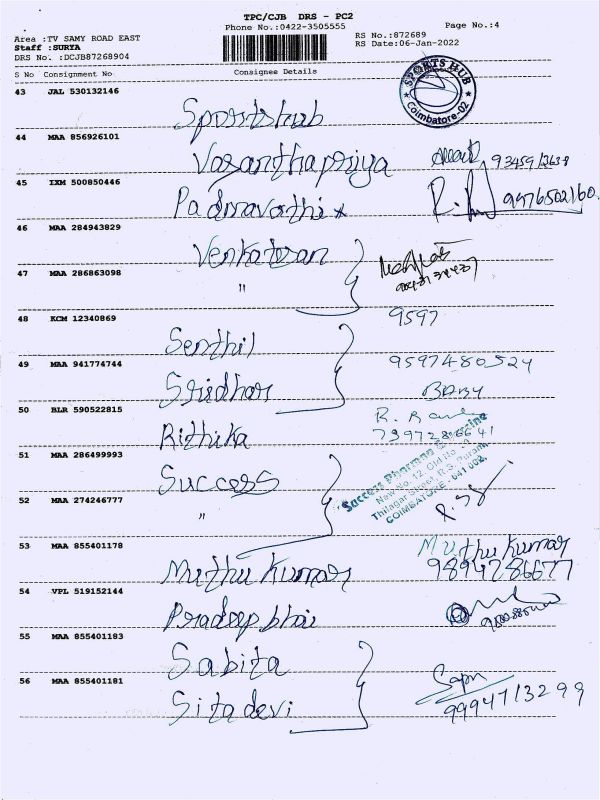 TPC/CJB DRS - PC2
Phone No.:0422-3505555
Page No.:4
Area :TV SAMY ROAD EAST
Staff :SURYA
DRS No. :DCJB87268904
RS No.:872689
RS Date:06-Jan-2022
S No Consignment No Consignee Details
43 JAL 530132146
Sportshub
SPORTS HUB
Coimbatore-02
44 MAA 856926101
Vasanthapriya
45 IXM 500850446
Padmavathi
46 MAA 284943829
Venkatesan
47 MAA 286863098
"
48 KCM 12340869
9597
Senthil
49 MAA 941774744
9597480524
Sridhar
BABY
50 BLR 590522815
Rithika
51 MAA 286499993
Success
Success Pharma
New No. 12, Old No
Thilagar Street, R.S. Puram
COIMBATORE - 641 002.
52 MAA 274246777
"
53 MAA 855401178
Muthu Kumar
Muthu Kumar
9894286677
54 VPL 519152144
Pradeep bhai
55 MAA 855401183
Sabita
56 MAA 855401181
Sita devi
9994713299